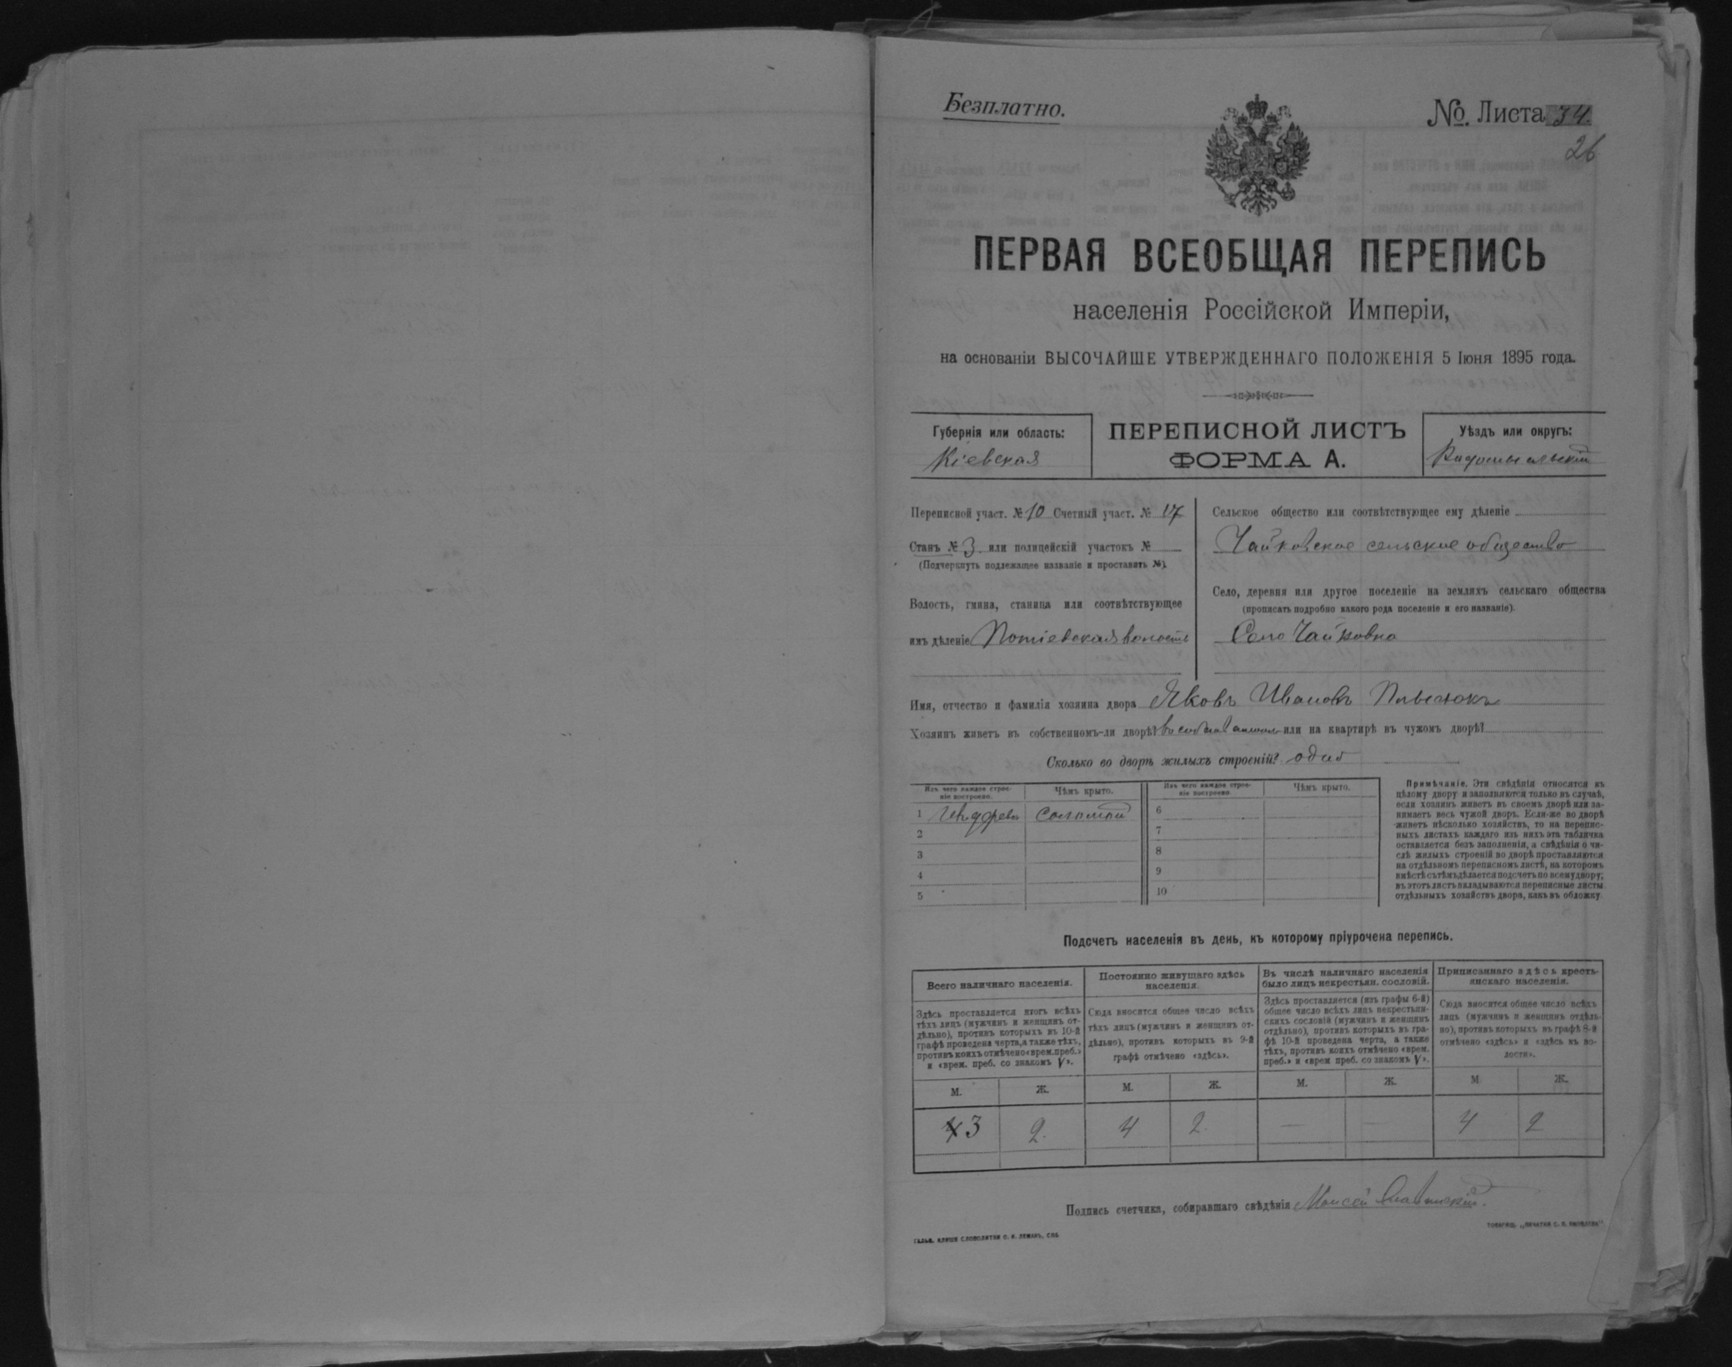 Безплатно.
№. Листа 34
26
ПЕРВАЯ ВСЕОБЩАЯ ПЕРЕПИСЬ
населенія Россійской Имперіи,
на основаніи ВЫСОЧАЙШЕ УТВЕРЖДЕННАГО ПОЛОЖЕНІЯ 5 Іюня 1895 года.
Губернія или область:
Кіевская
ПЕРЕПИСНОЙ ЛИСТЪ
ФОРМА А.
Уѣздъ или округъ:
Радомысльскій
Переписной участ. № 10 Счетный участ. № 17
Станъ № 3 или полицейскій участокъ №
(Подчеркнуть подлежащее названіе и проставить №).
Волость, гмина, станица или соотвѣтствующее
имъ дѣленіе Потіевская волость
Сельское общество или соотвѣтствующее ему дѣленіе
Чайковское сельское общество
Село, деревня или другое поселеніе на земляхъ сельскаго общества
(прописать подробно какого рода поселеніе и его названіе).
Село Чайковка
Имя, отчество и фамилія хозяина двора Яковъ Ивановъ
Хозяинъ живетъ въ собственномъ-ли дворѣ? или на квартирѣ въ чужомъ дворѣ?
Сколько во дворѣ жилыхъ строеній? одно
Изъ чего каждое строе-
ніе построено.
Чѣмъ крыто.
Изъ чего каждое строе-
ніе построено.
Чѣмъ крыто.
1 Изъ дерева соломой
2
3
4
5
6
7
8
9
10
Примѣчаніе. Эти свѣдѣнія относятся къ
цѣлому двору и заполняются только въ случаѣ,
если хозяинъ живетъ въ своемъ дворѣ или за-
нимаетъ весь чужой дворъ. Если-же во дворѣ
живетъ нѣсколько хозяйствъ, то на перепис-
ныхъ листахъ каждаго изъ нихъ эта табличка
оставляется безъ заполненія, а свѣдѣнія о чи-
слѣ жилыхъ строеній во дворѣ проставляются
на отдѣльномъ переписномъ листѣ, на которомъ
вмѣстѣ съ тѣмъ дѣлается подсчетъ по всему двору;
въ этотъ листъ вкладываются переписные листы
отдѣльныхъ хозяйствъ двора, какъ въ обложку.
Подсчетъ населенія въ день, къ которому пріурочена перепись.
Всего наличнаго населенія.
Здѣсь проставляется итогъ всѣхъ
тѣхъ лицъ (мужчинъ и женщинъ от-
дѣльно), противъ которыхъ въ 10-й
графѣ проведена черта, а также тѣхъ,
противъ коихъ отмѣчено «врем. преб.»
и «врем. преб. со знакомъ V».
Постоянно живущаго здѣсь
населенія.
Сюда вносится общее число всѣхъ
тѣхъ лицъ (мужчинъ и женщинъ от-
дѣльно), противъ которыхъ въ 9-й
графѣ отмѣчено «здѣсь».
Въ числѣ наличнаго населенія
было лицъ некрестьян. сословій.
Здѣсь проставляется (изъ графы 6-й)
общее число всѣхъ лицъ некрестьян-
скихъ сословій (мужчинъ и женщинъ
отдѣльно), противъ которыхъ въ гра-
фѣ 10-й проведена черта, а также
тѣхъ, противъ коихъ отмѣчено «врем.
преб.» и «врем преб. со знакомъ V».
Приписаннаго здѣсь кресть-
янскаго населенія.
Сюда вносится общее число всѣхъ
лицъ (мужчинъ и женщинъ отдѣль-
но), противъ которыхъ въ графѣ 8-й
отмѣчено «здѣсь» и «здѣсь въ во-
лости».
М. Ж. М. Ж. М. Ж. М Ж.
4 3 2. 4 2. — — 4 2
Подпись счетчика, собиравшаго свѣдѣнія Моисей
ГАЛЬВ. КЛИШЕ СЛОВОЛИТНИ О. И. ЛЕМАНЪ, СПБ.
ТОВАРИЩ. „ПЕЧАТНЯ С. П. ЯКОВЛЕВА".